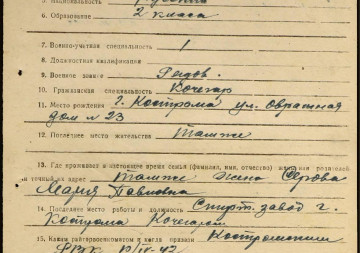 5. Национальность
6. Образование 2 класса
7. Военно-учетная специальность 1
8. Должностная квалификация
9. Военное звание Рядов.
10. Гражданская специальность Кочегар
11. Место рождения г. Кострома ул. Овражная
дом № 23
12. Последнее место жительства Там же
13. Где проживает в настоящее время семья (фамилия, имя, отчество) жены или родителей
и точный их адрес Там же Жена Серова
Мария Павловна
14. Последнее место работы и должность Спирт. завод г.
Кострома Кочегаром
15. Каким райгорвоенкоматом и когда призван Костромским
РВК 42